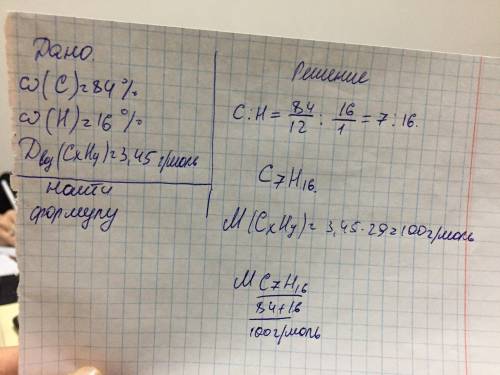 Дано.
ω(C)=84%
ω(H)=16%
Dвоз(CxHy)=3,45г/моль
Найти
формулу
Решение
C:H = 84/12 : 16/1 = 7:16.
C7H16.
M(CxHy)= 3,45·29=100г/моль
M C7H16
84+16
100г/моль